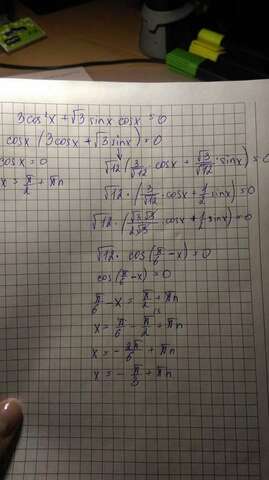 3cos²x + √3 sinx cosx = 0
cosx (3cosx + √3 sinx) = 0
cosx = 0
x = π/2 + πn
√12 (3/√12 cosx + √3/√12 sinx) = 0
√12 · (3/√12 cosx + 1/2 sinx) = 0
√12 · (√3·√3/2√3 cosx + 1/2 sinx) = 0
√12 · cos(π/6 - x) = 0
cos(π/6 - x) = 0
π/6 - x = π/2 + πn
x = π/6 - π/2 + πn
x = - 2π/6 + πn
x = - π/3 + πn